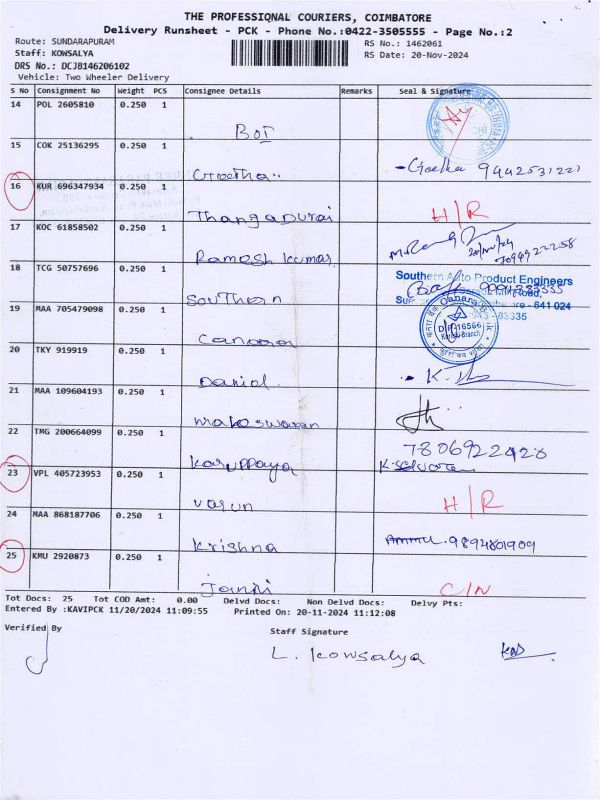 THE PROFESSIONAL COURIERS, COIMBATORE
Delivery Runsheet - PCK - Phone No.:0422-3505555 - Page No.:2
Route: SUNDARAPURAM
RS No.: 1462061
Staff: KOWSALYA
RS Date: 20-Nov-2024
DRS No.: DCJB146206102
Vehicle: Two Wheeler Delivery
S No Consignment No Weight PCS Consignee Details Remarks Seal & Signature
14 POL 2605810 0.250 1
BOI
15 COK 25136295 0.250 1
Geetha - Geetha 9442531221
16 KUR 696347934 0.250 1
Thangadurai H/R
17 KOC 61858502 0.250 1
Ramesh Kumar 20/11/24
7094922258
18 TCG 50757696 0.250 1
Southern
Southern Auto Product Engineers
641 024
19 MAA 705479098 0.250 1
Canara
Canara
DP 16566
20 TKY 919919 0.250 1
Daniel
21 MAA 109604193 0.250 1
22 TMG 200664099 0.250 1
Karuppaya 7806922428
23 VPL 405723953 0.250 1
Varun H/R
24 MAA 868187706 0.250 1
Krishna Ammu. 9894801909
25 KMU 2920873 0.250 1
C/N
Tot Docs: 25 Tot COD Amt: 0.00 Delvd Docs: Non Delvd Docs: Delvy Pts:
Entered By :KAVIPCK 11/20/2024 11:09:55 Printed On: 20-11-2024 11:12:08
Verified By
Staff Signature
L. Kowsalya